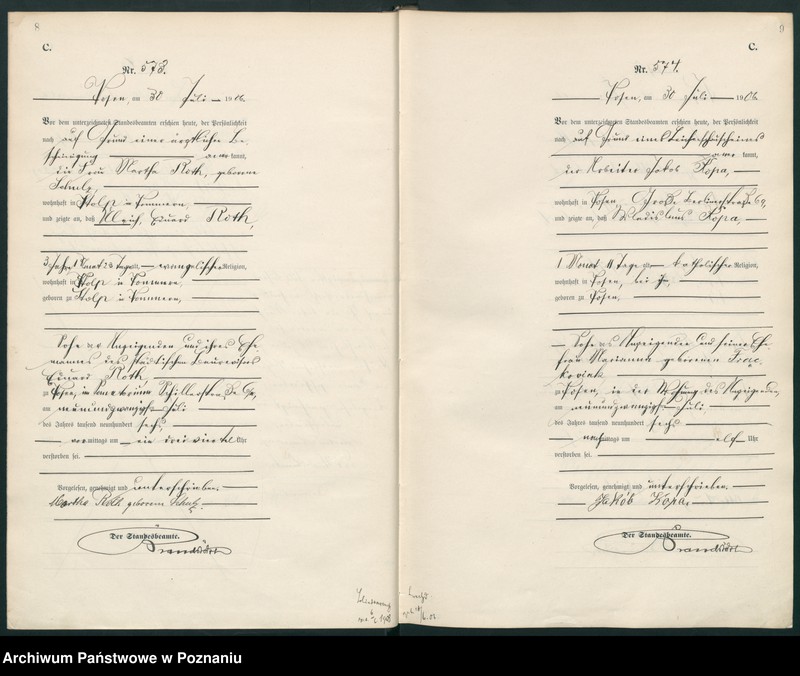 8
C.
Nr. 573.
Posen, am 30 Juli 1906.
Vor dem unterzeichneten Standesbeamten erschien heute, der Persönlichkeit
nach auf Grund einer ärztlichen Be-
scheinigung anerkannt,
die Frau Martha Roth, geborene
wohnhaft in Stolp in Pommern,
und zeigte an, daß Eduard Roth,
3 Jahre 1 Monat Tage alt, evangelischer Religion,
wohnhaft in Stolp in Pommern,
geboren zu Stolp in Pommern,
Sohn der Anzeigenden und ihres Ehe-
mannes des
Eduard Roth
zu Posen, im
am neunundzwanzigsten Juli
des Jahres tausend neunhundert sechs
vormittags um ein drei viertel Uhr
verstorben sei.
Vorgelesen, genehmigt und unterschrieben.
Martha Roth geborene
Der Standesbeamte.
9
C.
Nr. 574.
Posen, am 30 Juli 1906.
Vor dem unterzeichneten Standesbeamten erschien heute, der Persönlichkeit
nach auf Grund eines
anerkannt,
der Arbeiter Jakob Kopa,
wohnhaft in Posen, Große Berlinerstraße
und zeigte an, daß Wladislaus Kopa,
1 Monat 11 Tage katholischer Religion,
wohnhaft in Posen, bei
geboren zu Posen,
Sohn des Anzeigenden und seiner Ehe-
frau Marianna geborenen
zu Posen, in der Wohnung des Anzeigenden,
am neunundzwanzigsten Juli
des Jahres tausend neunhundert sechs
nachmittags um elf Uhr
verstorben sei.
Vorgelesen, genehmigt und unterschrieben.
Jakób Kopa.
Der Standesbeamte.
Archiwum Państwowe w Poznaniu